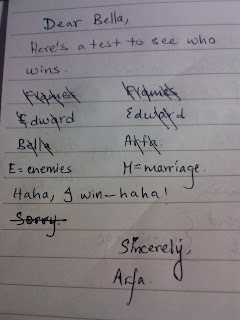 Dear Bella,
Here's a test to see who
wins.
Flames Flames
Edward Edward
Bella Arfa
E = enemies M = marriage.
Haha, I win – haha!
Sorry.
Sincerely,
Arfa.